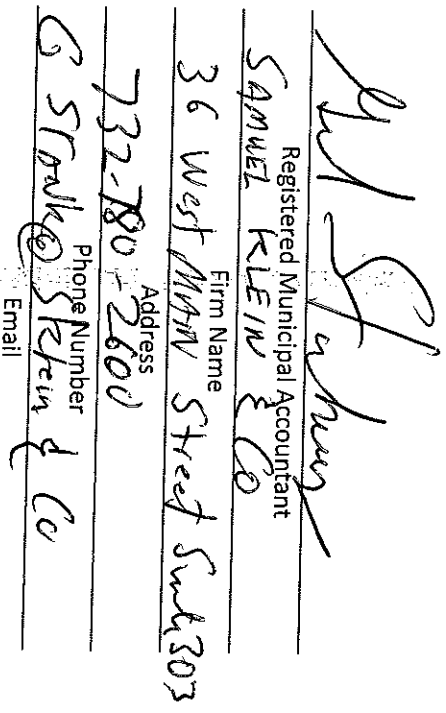 Registered Municipal Accountant
SAMUEL KLEIN & CO
Firm Name
36 West MAIN Street Suite 303
Address
732-780-2600
Phone Number
G Stank@SKlein & Co
Email